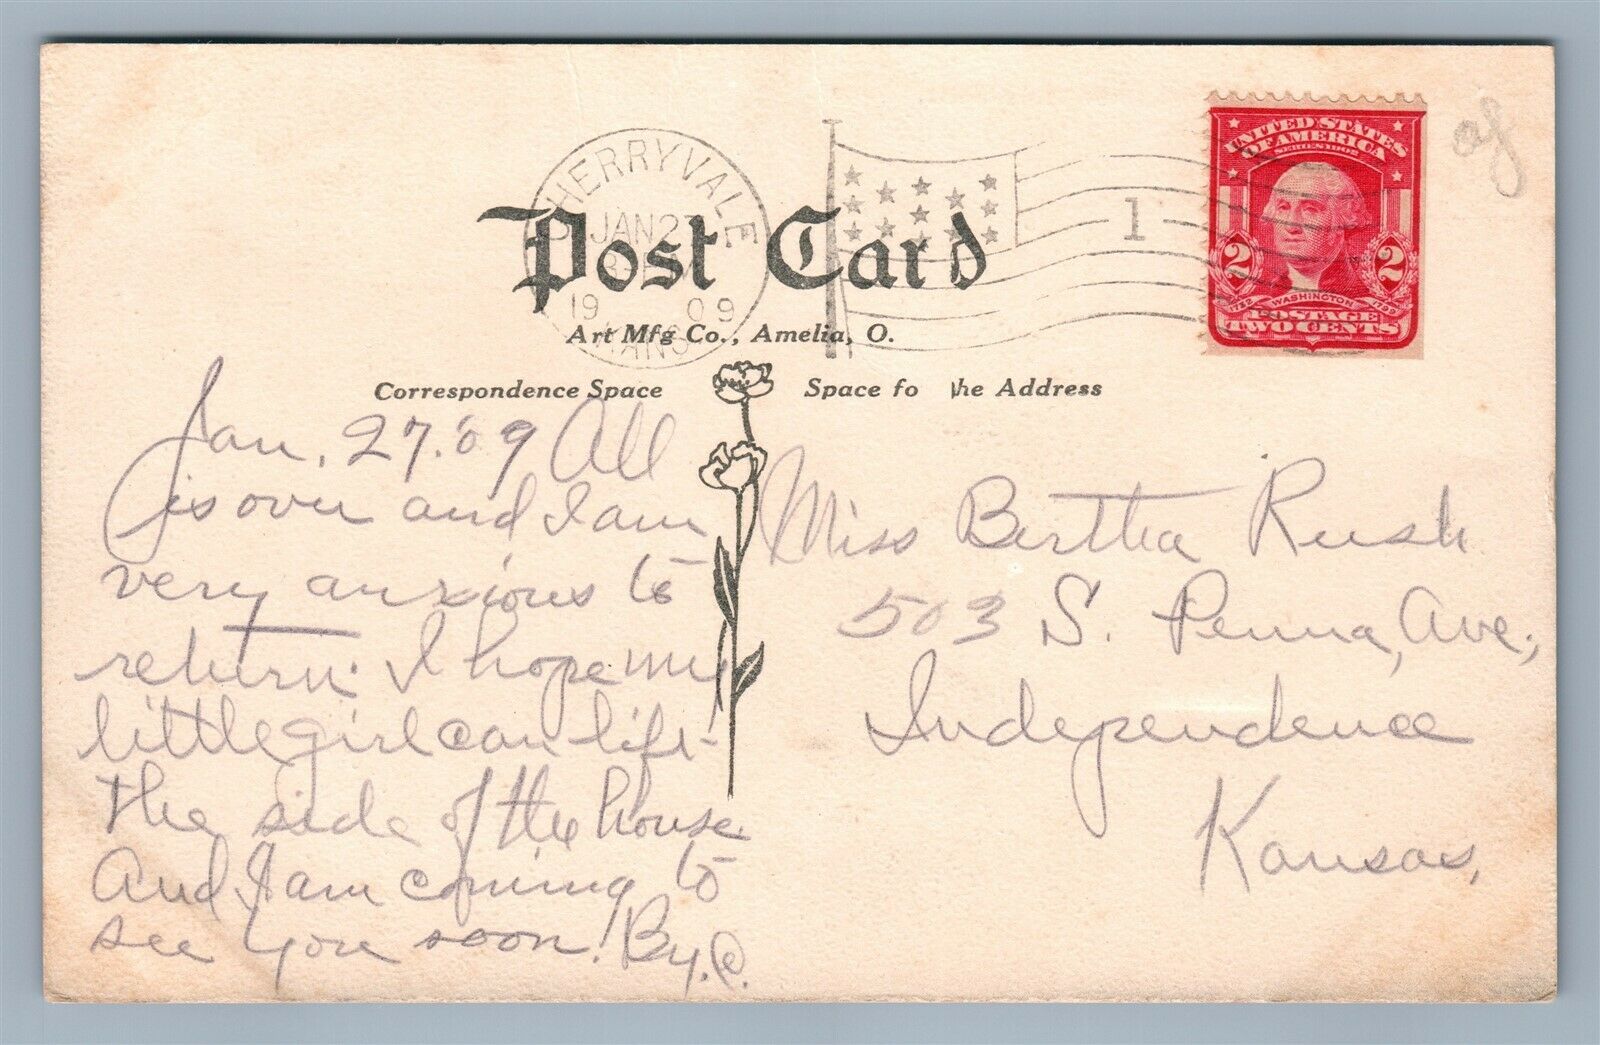 CHERRYVALE
JAN 27
19 09
KANS
1
UNITED STATES
OF AMERICA
SERIES 1902
2 2
1732 WASHINGTON 1799
POSTAGE
TWO CENTS
Post Card
Art Mfg Co., Amelia, O.
Correspondence Space
Space fo he Address
Jan. 27. '09 All
is over and I am
very anxious to
return. I hope my
little girl can lift
the side of the house
And I am coming to
see you soon! By. C.
Miss Bertha Rush
503 S. Penna, Ave.,
Independence
Kansas,